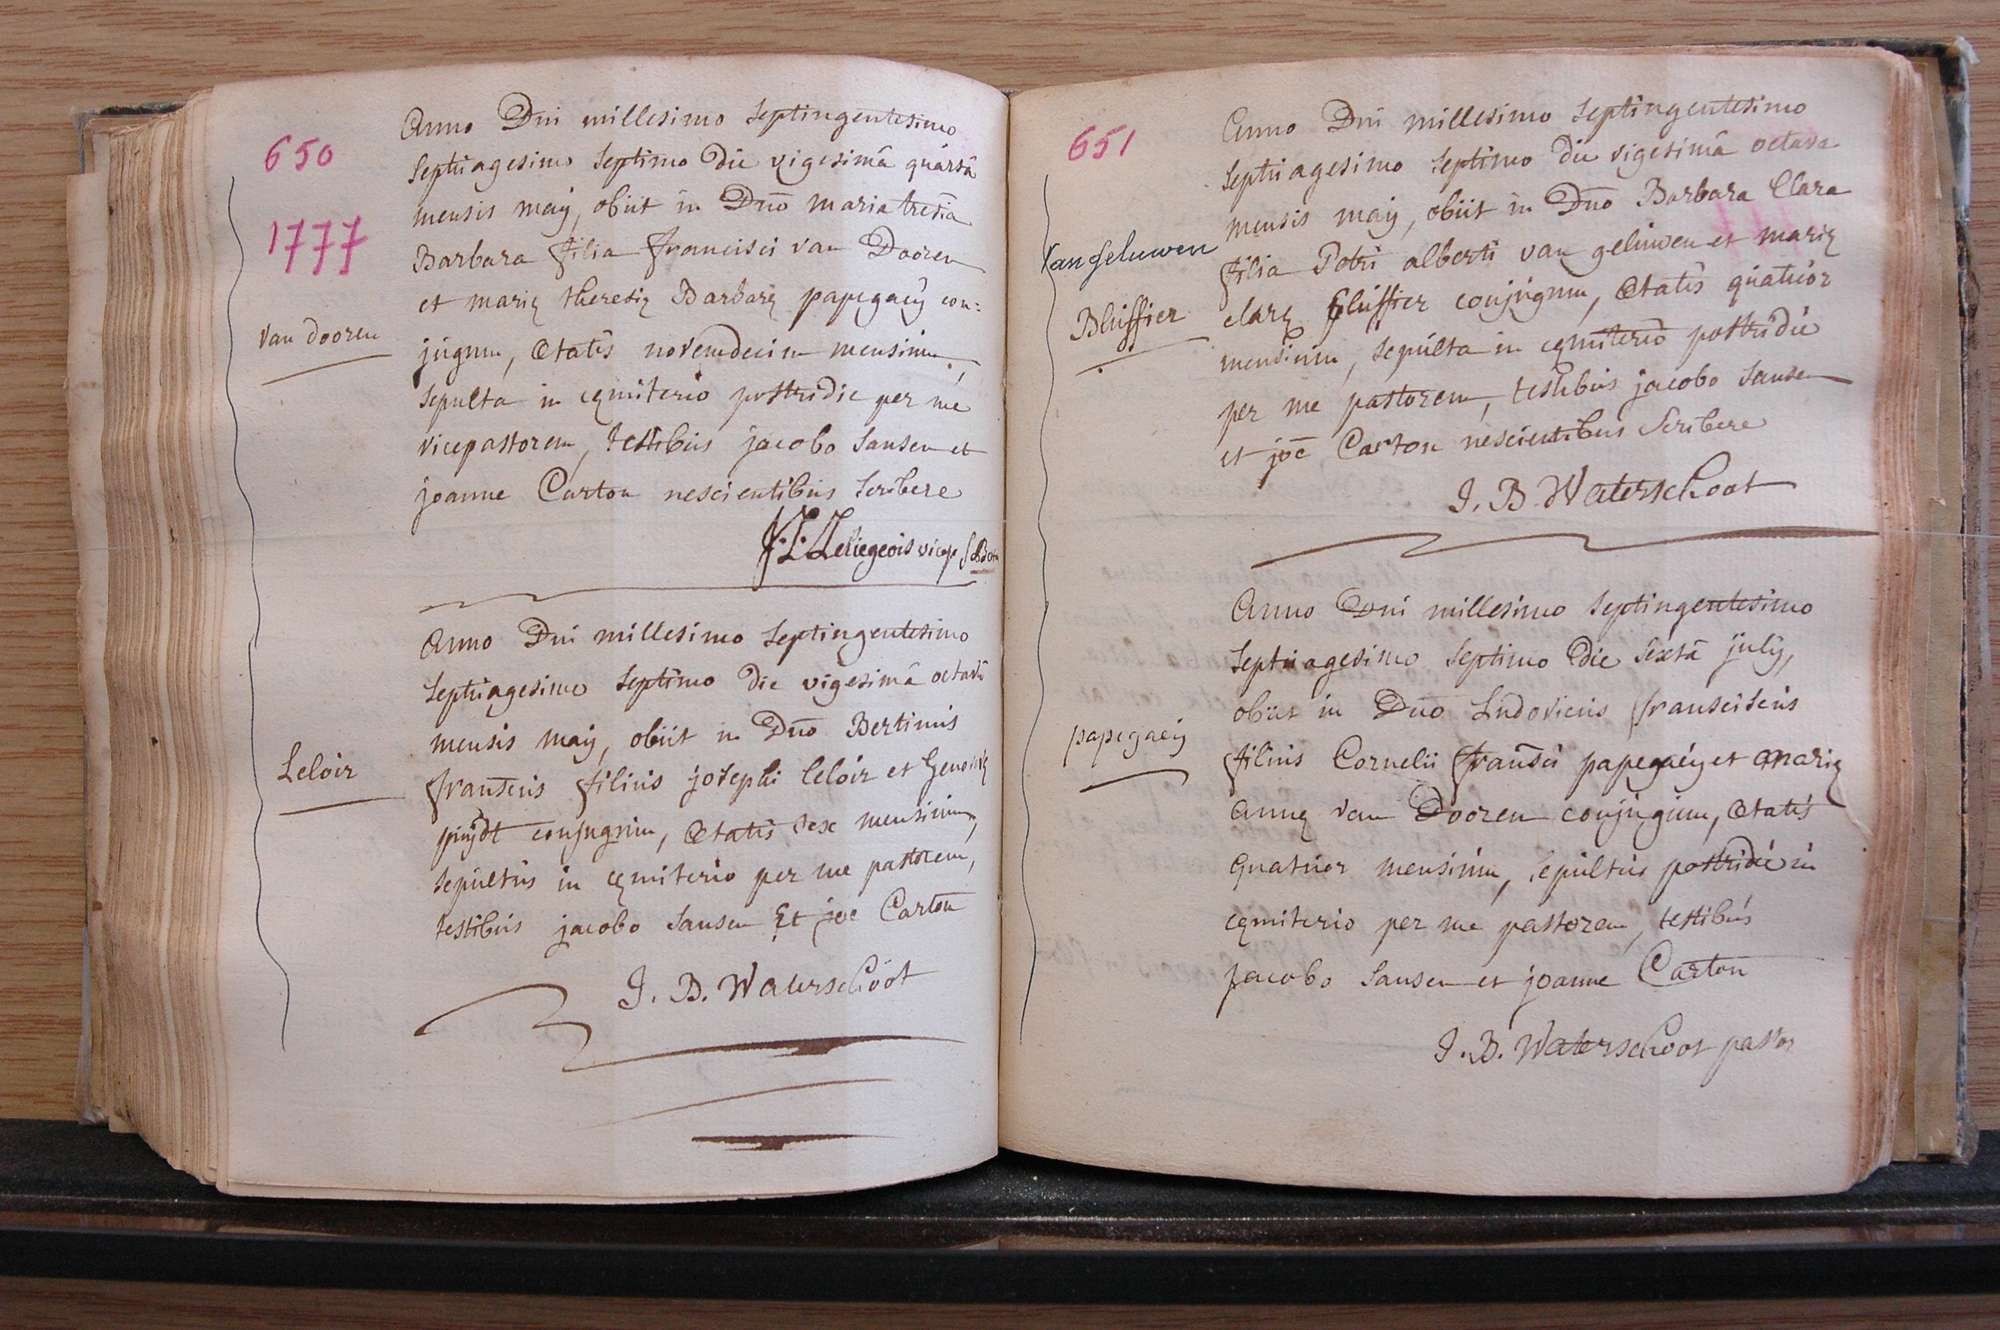 650
1777
Anno Dni millesimo Septingentesimo
Septuagesimo Septimo die vigesimâ quartâ
mensis maÿ, obiit in Dno maria tresia
Barbara filia francisci van Dooren
et marię theresię Barbarę papegaeÿ con:
jugum, Ætatis novemdecim mensium,
Sepulta in cęmiterio postridie per me
vicepastorem, testibus jacobo Sansen et
joanne Carton nescientibus Scribere
Leliegeois vicep
van dooren
Anno Dni millesimo Septingentesimo
Septuagesimo Septimo die vigesimâ octavâ
mensis maÿ, obiit in Dno Bertinus
franscus filius josephi leloir et Genovę
conjugum, Ætatis sex mensium,
sepultus in cęmiterio per me pastorem,
testibus jacobo Sansen Et joe Carton
J. B. Waterschoot
Leloir
651
Anno Dni millesimo Septingentesimo
Septuagesimo Septimo die vigesimâ octava
mensis maÿ, obiit in Dno Barbara Clara
filia Petri alberti van geluwen et marię
clarę Bluffier conjugum, Ætatis quatuor
mensium, sepulta in cęmiterio postridie
per me pastorem, testibus jacobo Sansen
et joe Carton nescientibus Scribere
J. B. Waterschoot
Van geluwen
Bluffier
Anno Dni millesimo Septingentesimo
Septuagesimo Septimo die Sextâ julÿ,
obiit in Dno Ludovicus franciscus
filius Cornelii fransci papegaeÿ et marię
annę van Dooren conjugum, Ætatis
quatuor mensium, sepultus postridie in
cęmiterio per me pastorem, testibus
jacobo Sansen et joanne Carton
J. B. Waterschoot pastor
papegaeÿ